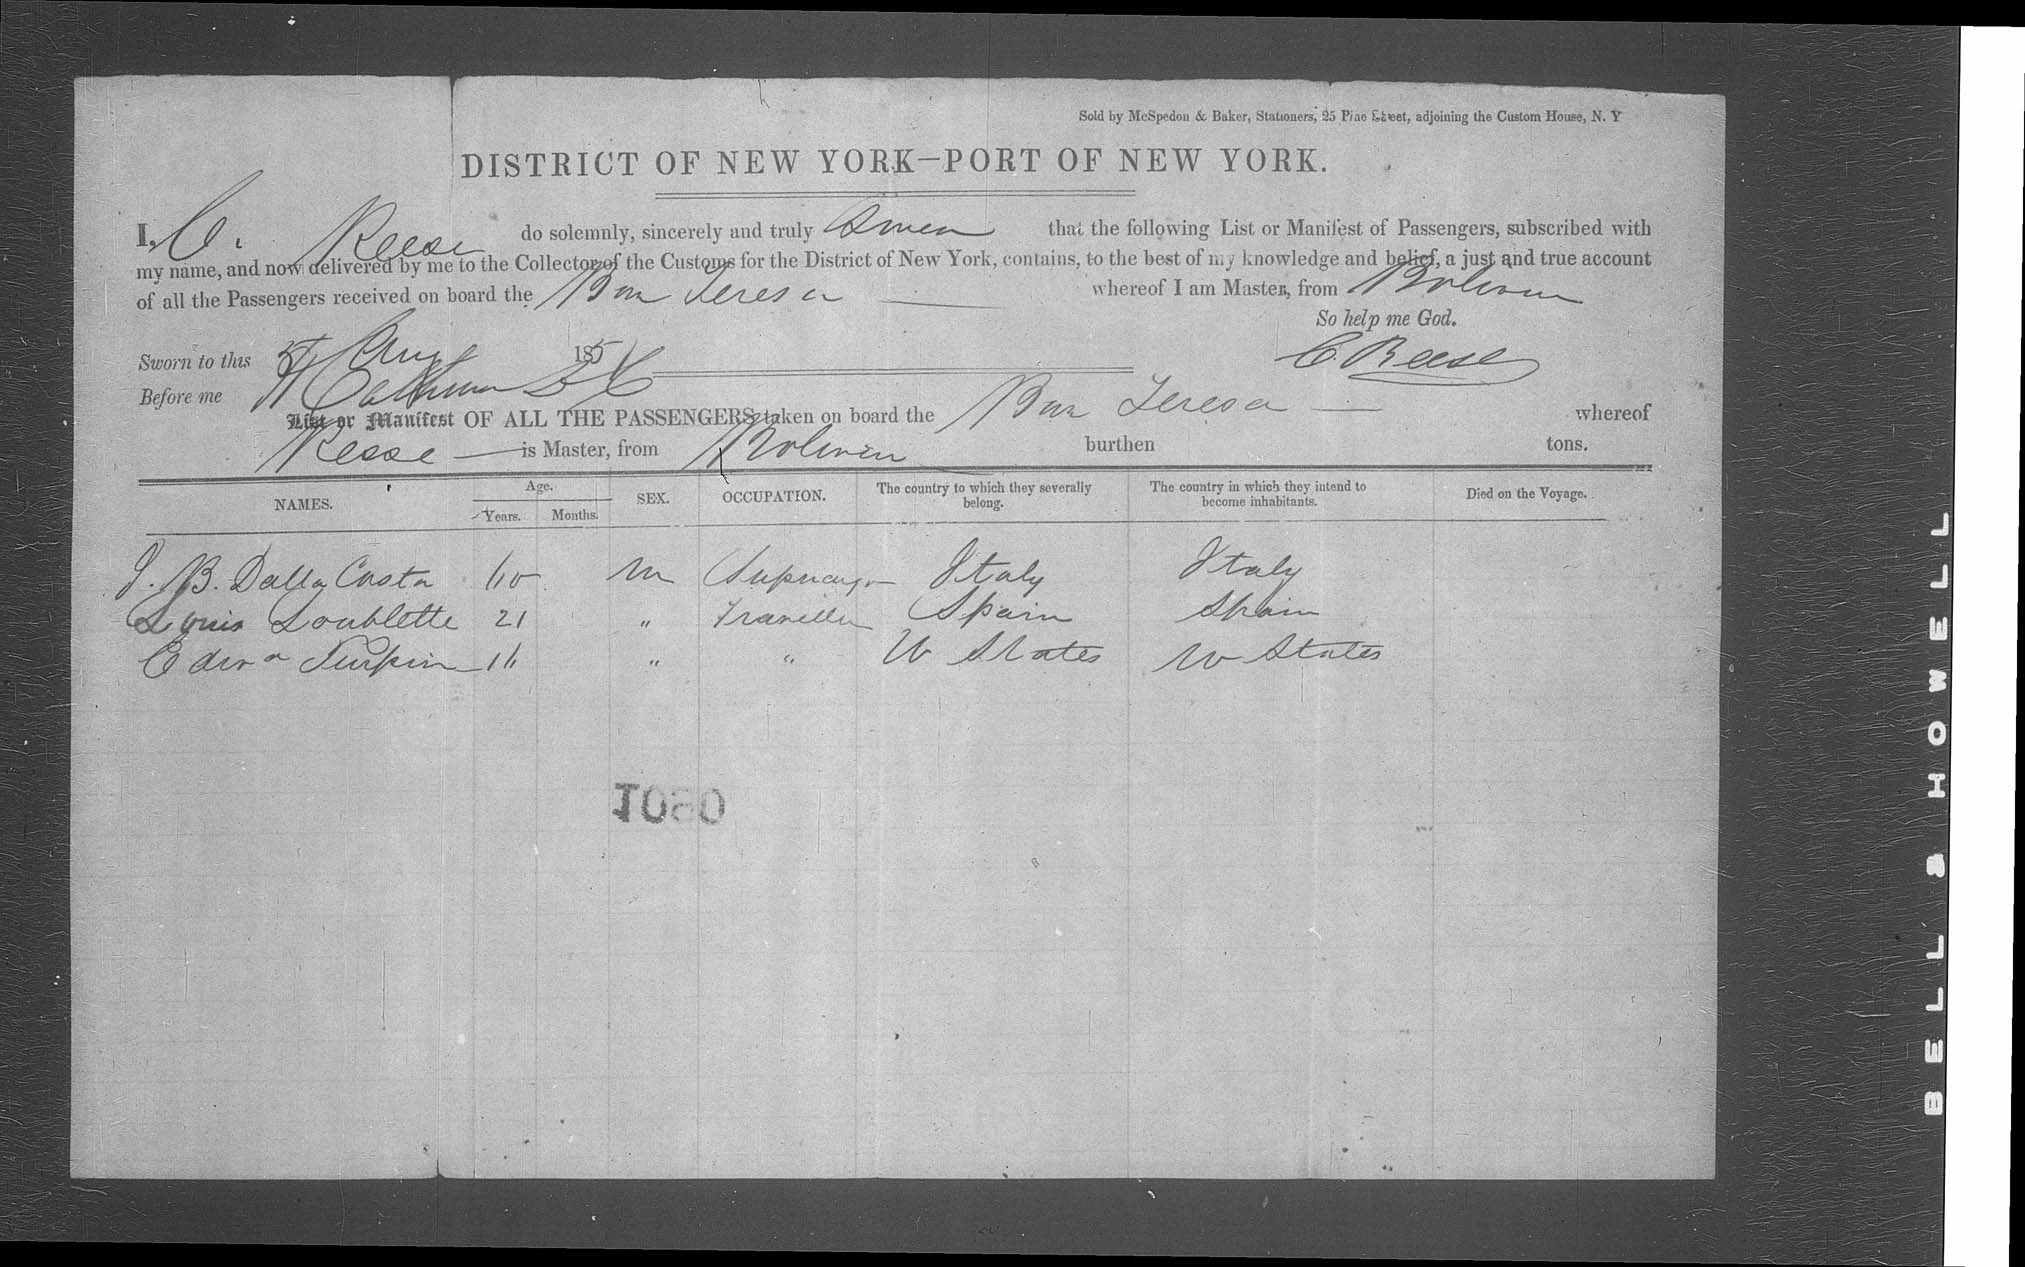 Sold by McSpedon & Baker, Stationers, 25 Pine Street, adjoining the Custom House, N. Y
DISTRICT OF NEW YORK—PORT OF NEW YORK.
I, C. Reese do solemnly, sincerely and truly Swear that the following List or Manifest of Passengers, subscribed with
my name, and now delivered by me to the Collector of the Customs for the District of New York, contains, to the best of my knowledge and belief, a just and true account
of all the Passengers received on board the Teresa whereof I am Master, from Bolivar
So help me God.
Sworn to this Aug 185 C. Reese
Before me
List or Manifest OF ALL THE PASSENGERS taken on board the Teresa whereof
Reese is Master, from Bolivar burthen tons.
NAMES. Age. Years. Months. SEX. OCCUPATION. The country to which they severally belong. The country in which they intend to become inhabitants. Died on the Voyage.
J. B. Dalla Costa M Italy Italy
Louis Soublette 21 " Traveller Spain Spain
Turpin 16 " " U States U States
1080
BELL & HOWELL